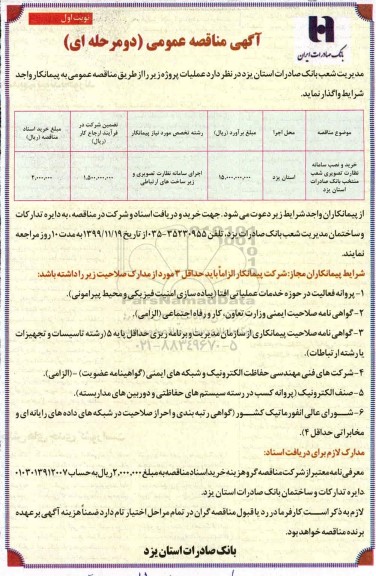 نوبت اول
بانک صادرات ایران
آگهی مناقصه عمومی (دومرحله ای)
مدیریت شعب بانک صادرات استان یزد در نظر دارد عملیات پروژه زیر را از طریق مناقصه عمومی به پیمانکار واجد
شرایط واگذار نماید.
موضوع مناقصه
محل اجرا
مبلغ برآورد (ریال)
رشته تخصص مورد نیاز پیمانکار
تضمین شرکت در فرآیند ارجاع کار (ریال)
مبلغ خرید اسناد مناقصه (ریال)
خرید و نصب سامانه نظارت تصویری شعب منتخب بانک صادرات استان یزد
استان یزد
اجرای سامانه نظارت تصویری و زیر ساخت های ارتباطی
از پیمانکاران واجد شرایط زیر دعوت می شود. جهت خرید و دریافت اسناد و شرکت در مناقصه، به دایره تدارکات
و ساختمان مدیریت شعب بانک صادرات یزد، تلفن ۳۵۲۳۰۹۵۵-۰۳۵ از تاریخ ۱۳۹۹/۱۱/۱۹ به مدت ۱۰ روز مراجعه
نمایند.
شرایط پیمانکاران مجاز: شرکت پیمانکار الزاماً باید حداقل ۳ مورد از مدارک صلاحیت زیر را داشته باشد:
۱- پروانه فعالیت در حوزه خدمات عملیاتی افتا (پیاده سازی امنیت فیزیکی و محیط پیرامونی).
۲- گواهی نامه صلاحیت ایمنی وزارت تعاون، کار و رفاه اجتماعی (الزامی).
۳- گواهی نامه صلاحیت پیمانکاری از سازمان مدیریت و برنامه ریزی حداقل پایه ۵ (رشته تاسیسات و تجهیزات
یا رشته ارتباطات).
۴- شرکت های فنی مهندسی حفاظت الکترونیک و شبکه های ایمنی (گواهینامه عضویت) - (الزامی).
۵- صنف الکترونیک (پروانه کسب در رسته سیستم های حفاظتی و دوربین های مداربسته).
۶- شورای عالی انفورماتیک کشور (گواهی رتبه بندی و احراز صلاحیت در شبکه های داده های رایانه ای و
مخابراتی حداقل ۴).
مدارک لازم برای دریافت اسناد:
معرفی نامه معتبر از شرکت مناقصه گر و هزینه خرید اسناد مناقصه به مبلغ ۲،۰۰۰،۰۰۰ ریال به حساب ۰۱۰۳۰۱۳۹۱۲۰۰۷
دایره تدارکات و ساختمان بانک صادرات استان یزد.
لازم به ذکر است کارفرما در رد یا قبول مناقصه گران در تمام مراحل اختیار تام دارد ضمناً هزینه آگهی بر عهده
برنده مناقصه خواهد بود.
بانک صادرات استان یزد